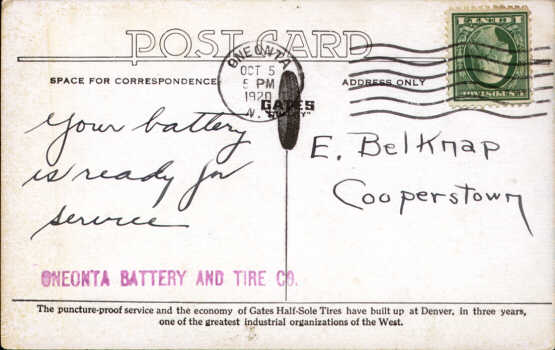 POST CARD
SPACE FOR CORRESPONDENCE
ADDRESS ONLY
ONEONTA
OCT 5
5 PM
1920
N.
GATES
Your battery
is ready for
service
E. Belknap
Cooperstown
ONEONTA BATTERY AND TIRE CO.
The puncture-proof service and the economy of Gates Half-Sole Tires have built up at Denver, in three years,
one of the greatest industrial organizations of the West.